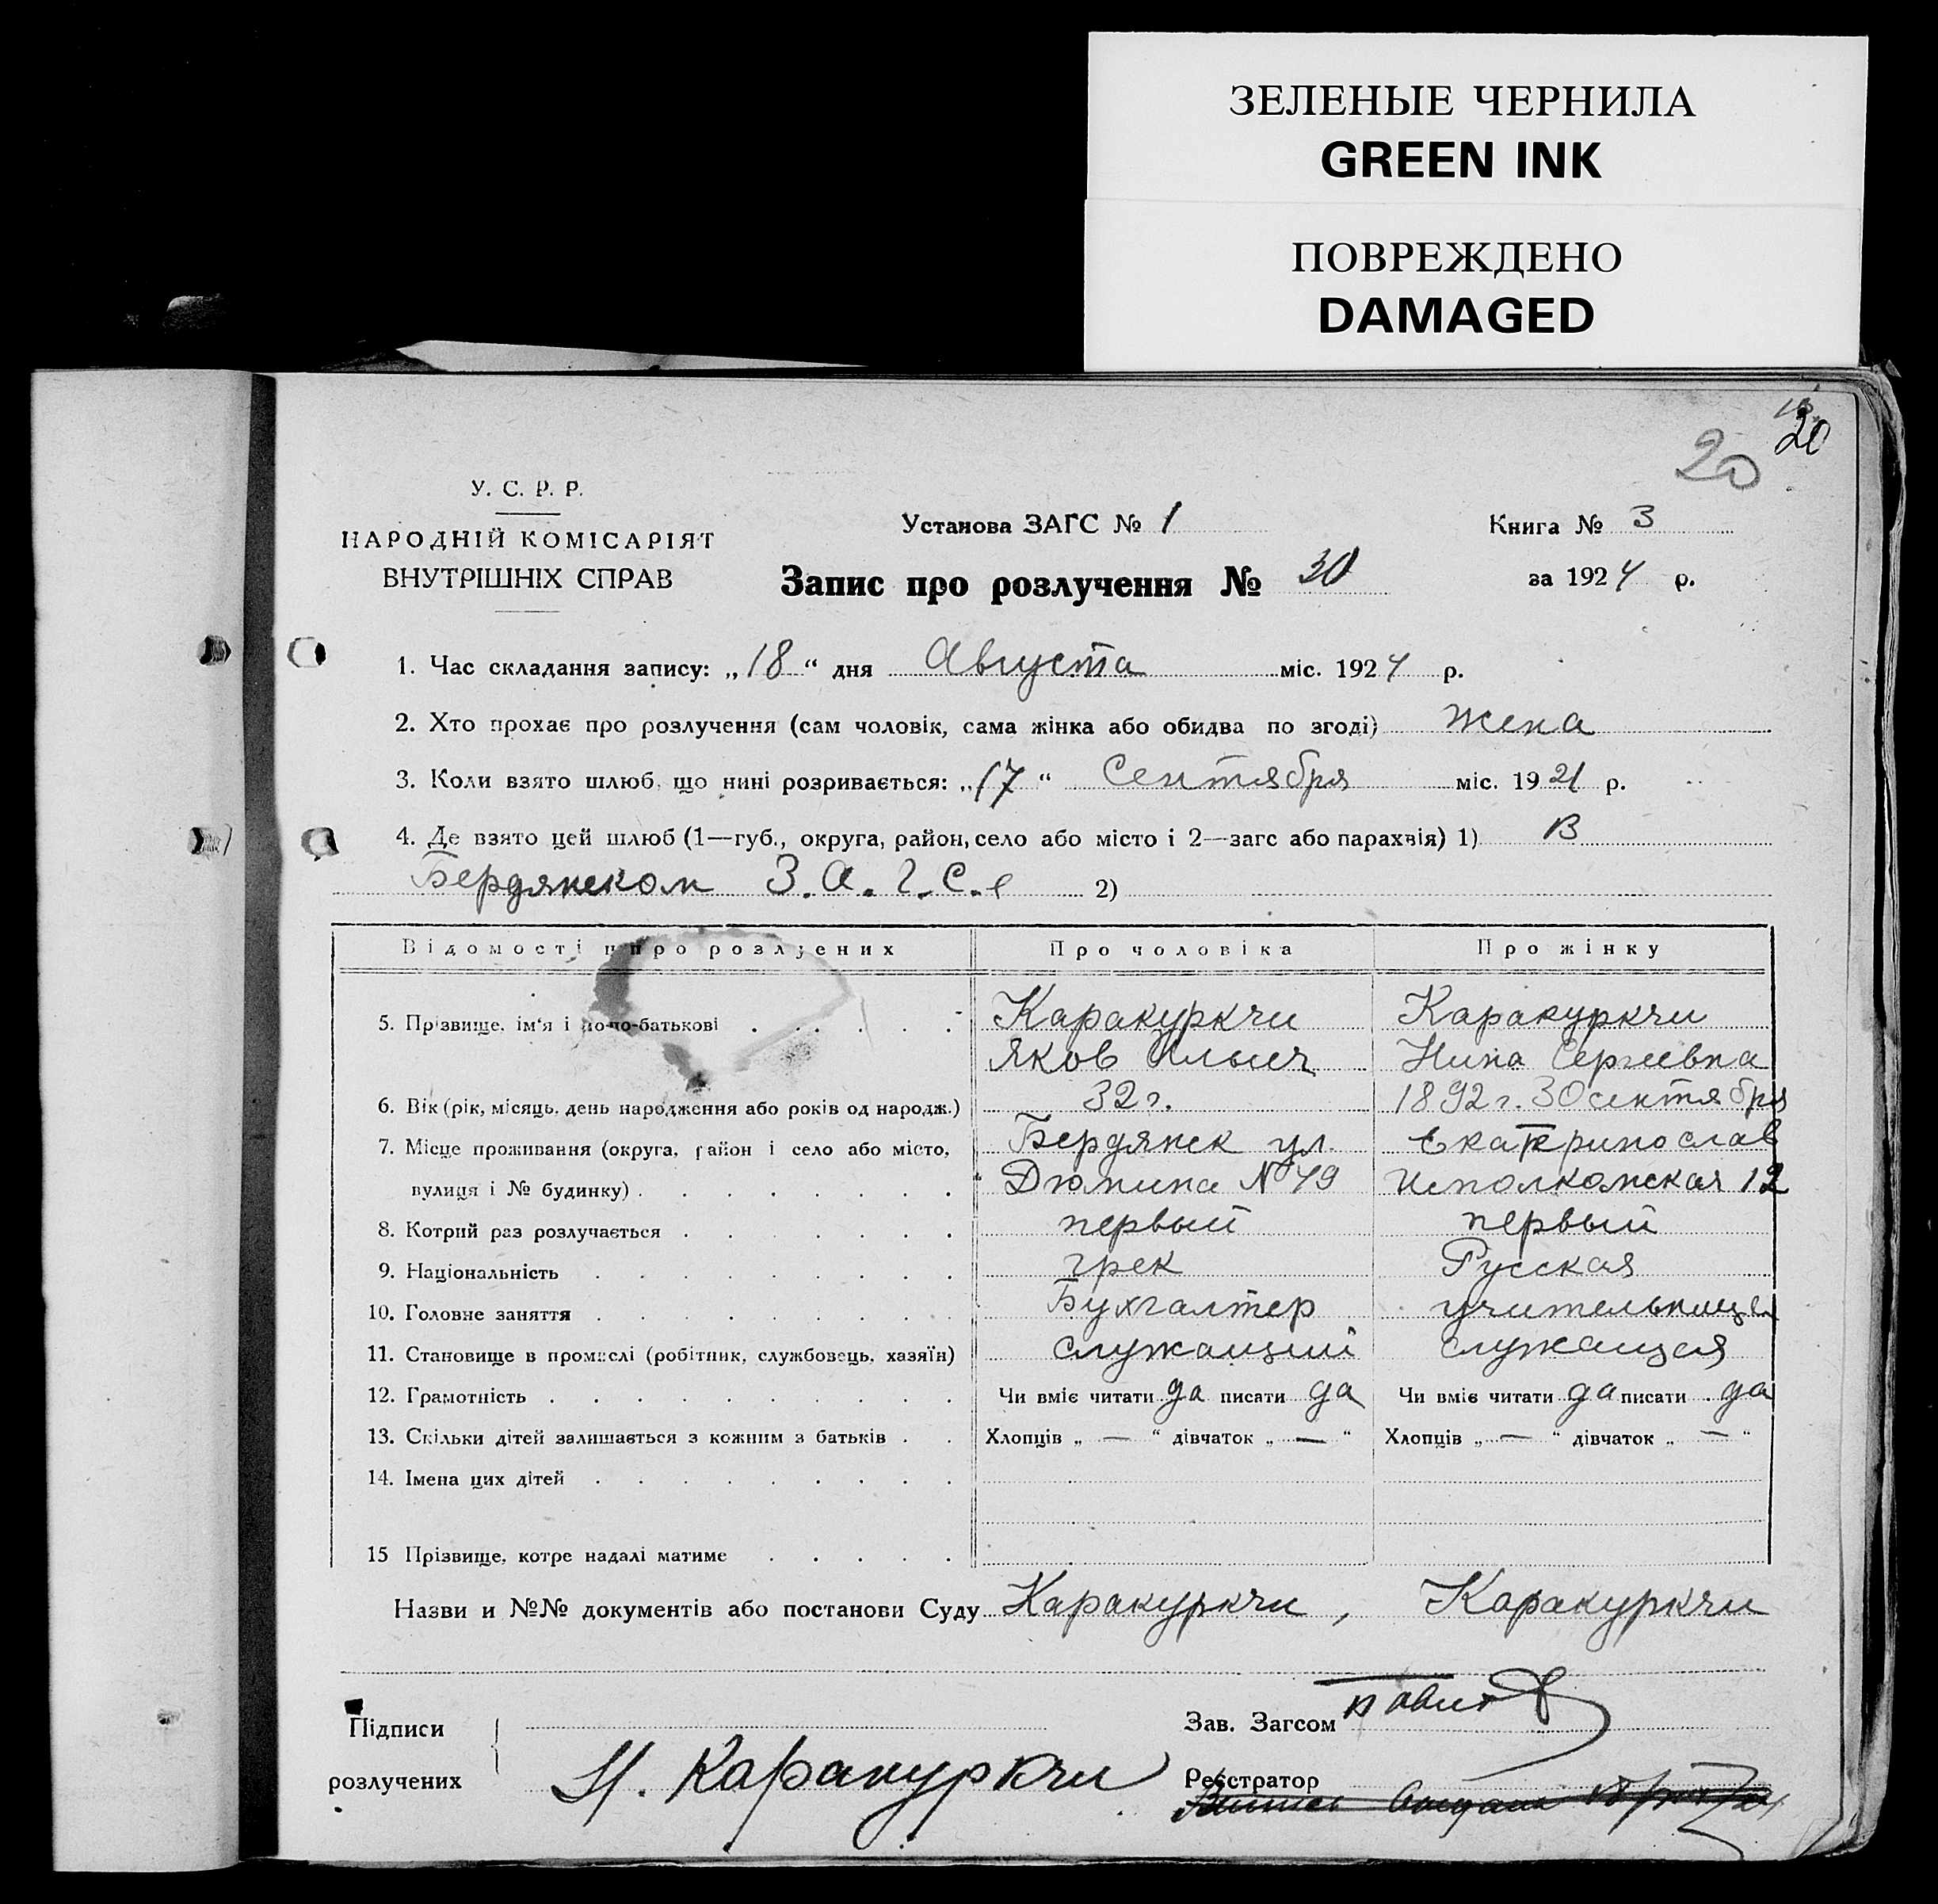 ЗЕЛЕНЫЕ ЧЕРНИЛА
GREEN INK
ПОВРЕЖДЕНО
DAMAGED
20
20
У. С. Р. Р.
НАРОДНІЙ КОМІСАРІЯТ
ВНУТРІШНІХ СПРАВ
Установа ЗАГС № 1
Книга № 3
Запис про розлучення № 30
за 1924 р.
1. Час складання запису: „18“ дня Августа міс. 1924 р.
2. Хто прохає про розлучення (сам чоловік, сама жінка або обидва по згоді) жена
3. Коли взято шлюб, що нині розривається: „17“ Сентября міс. 1921 р.
4. Де взято цей шлюб (1—губ., округа, район, село або місто і 2—загс або парахвія) 1) В
Бердянском З.А.Г.С.е 2)
Відомості про розлучених Про чоловіка Про жінку
5. Прізвище, ім'я і по-батькові Каракуркчи Каракуркчи
Яков Ильич Нина Сергеевна
6. Вік (рік, місяць, день народження або років од народж.) 32 г. 1892 г. 30 сентября
7. Місце проживання (округа, район і село або місто, Бердянск ул. Екатеринослав
вулиця і № будинку) Дюмина № 49 Исполкомская 12
8. Котрий раз розлучається первый первый
9. Національність грек Русская
10. Головне заняття Бухгалтер учительница
11. Становище в промислі (робітник, службовець, хазяїн) служащий служащая
12. Грамотність Чи вміє читати да писати да Чи вміє читати да писати да
13. Скільки дітей залишається з кожним з батьків Хлопців „ — “ дівчаток „ — “ Хлопців „ — “ дівчаток „ — “
14. Імена цих дітей
15 Прізвище, котре надалі матиме
Назви и №№ документів або постанови Суду Каракуркчи, Каракуркчи
Підписи
розлучених
Н. Каракуркчи
Зав. Загсом
Реєстратор